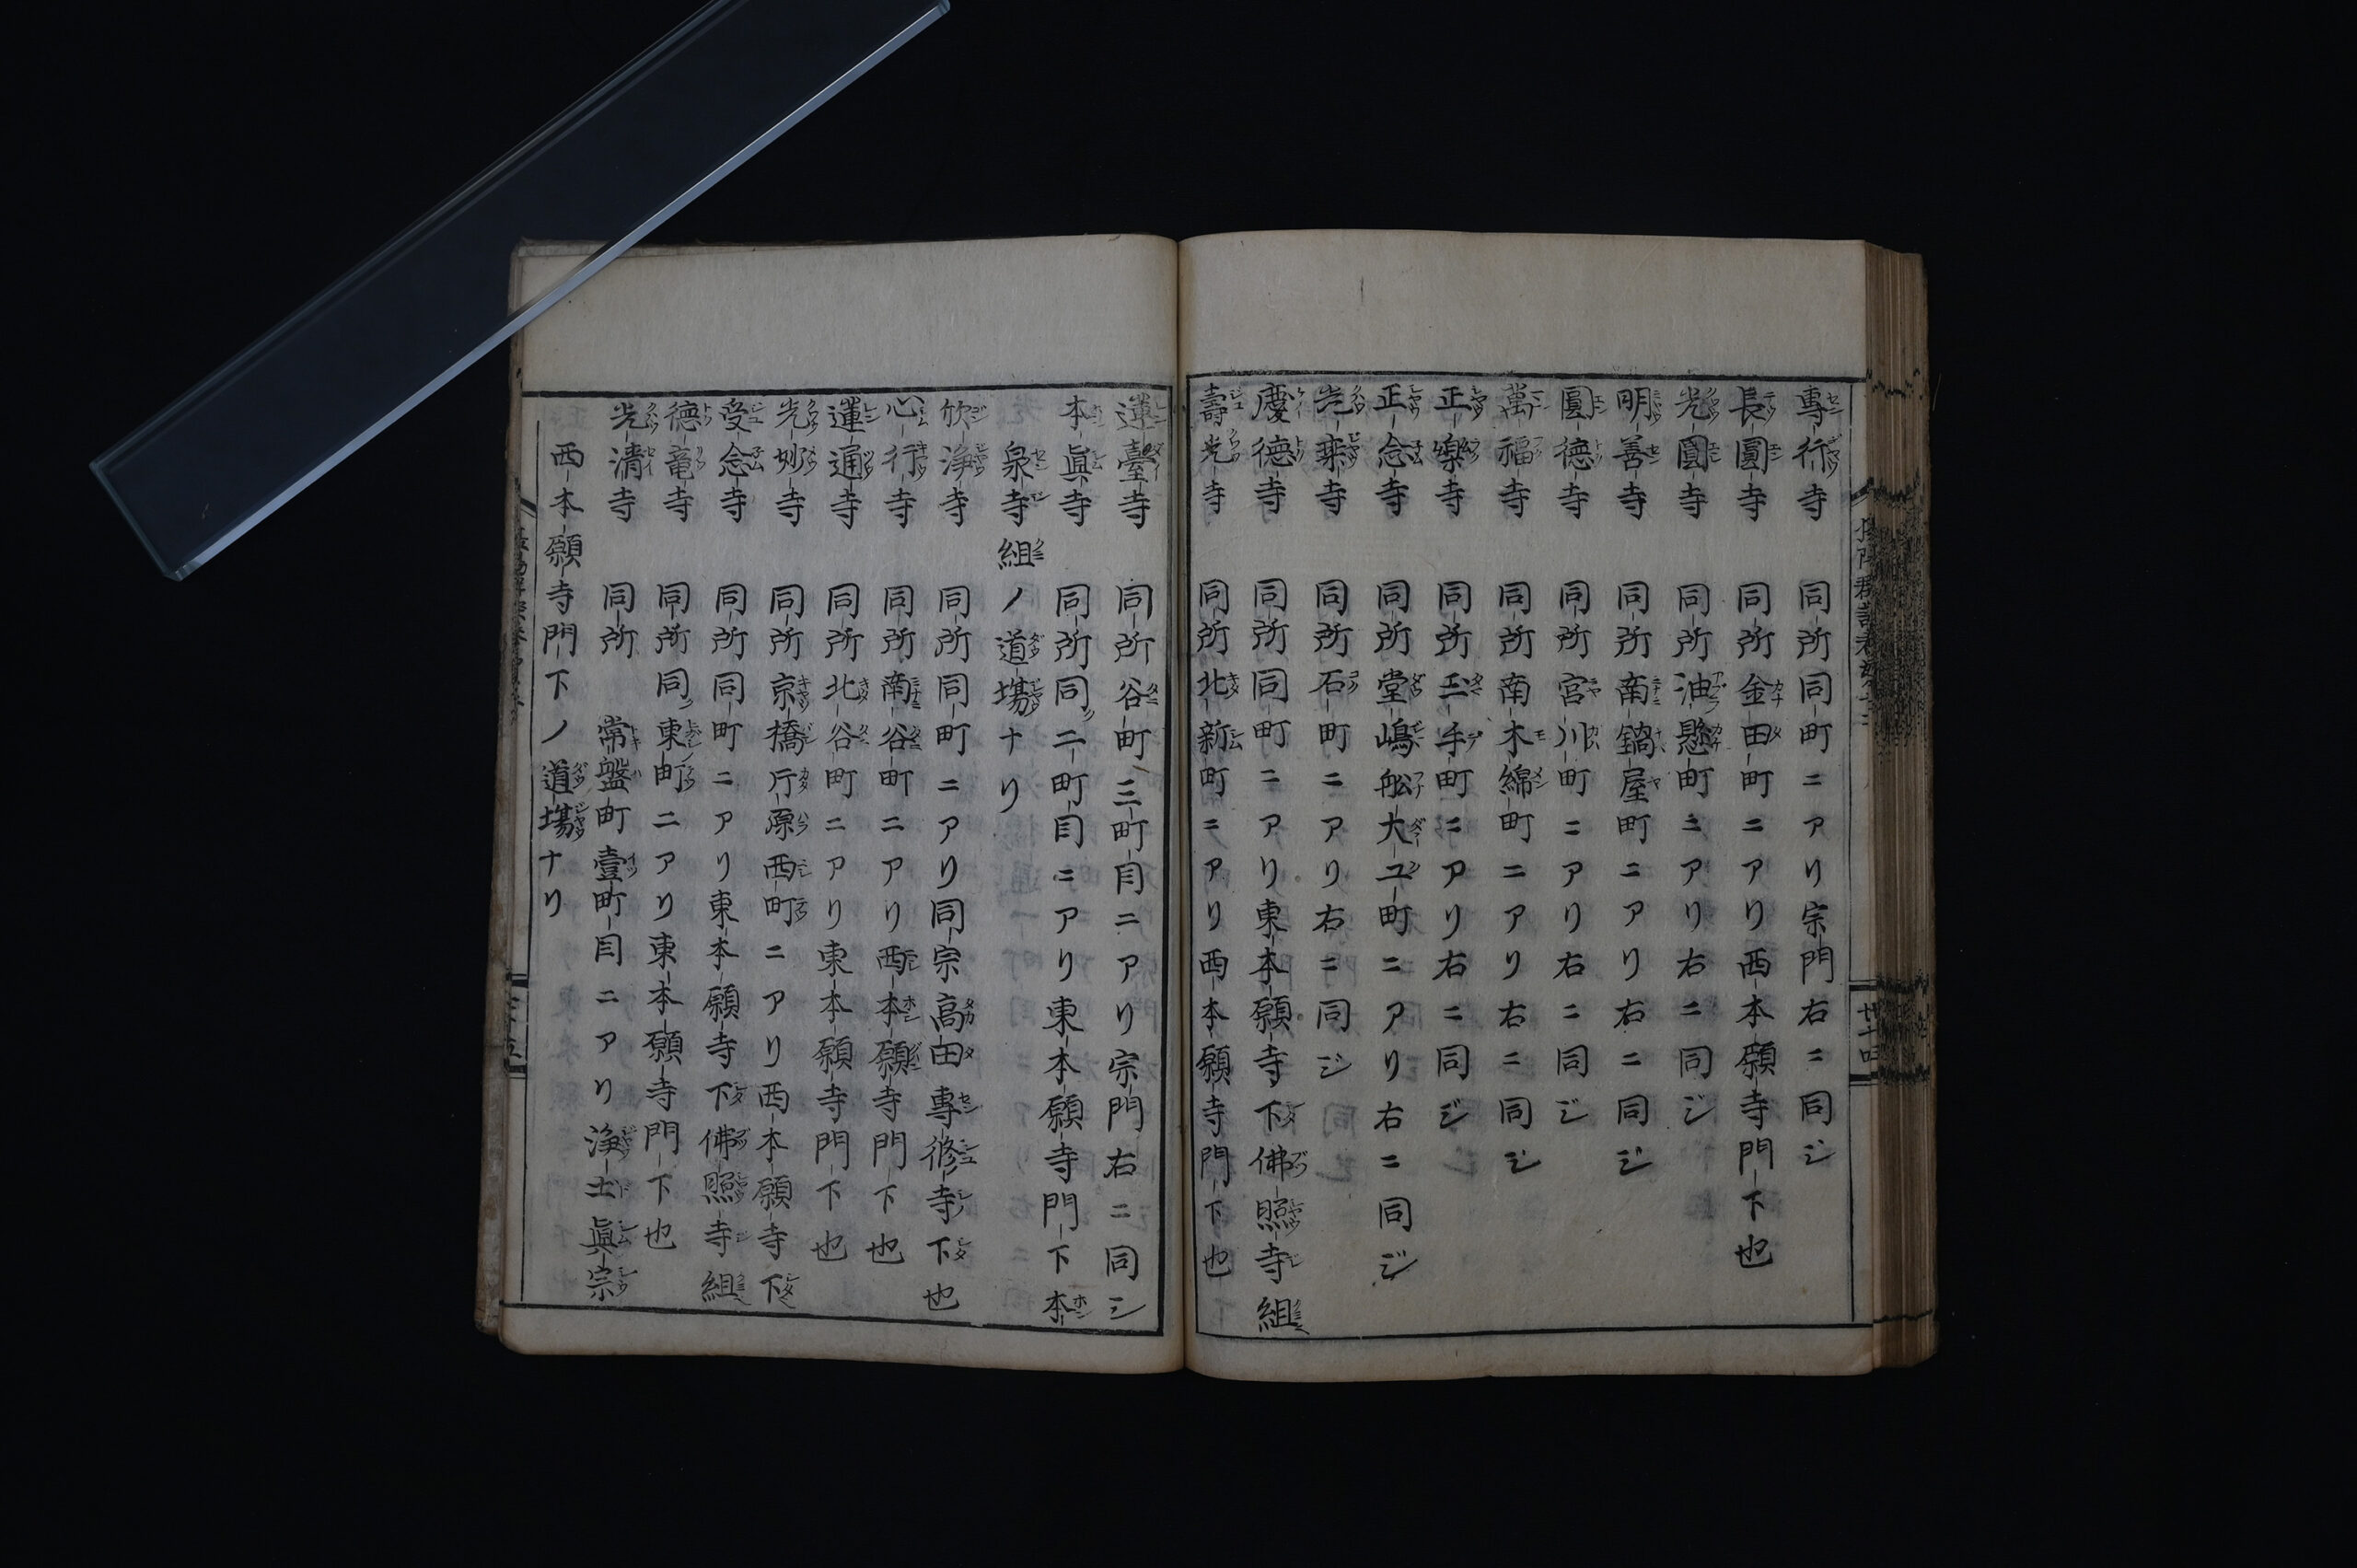 專行寺 同所同町ニアリ宗門右ニ同ジ
長圓寺 同所金田町ニアリ西本願寺門下也
光圓寺 同所油懸町ニアリ右ニ同ジ
明善寺 同所南鍋屋町ニアリ右ニ同ジ
圓德寺 同所宮川町ニアリ右ニ同ジ
萬福寺 同所南木綿町ニアリ右ニ同ジ
正樂寺 同所玉手町ニアリ右ニ同ジ
正念寺 同所堂嶋舩大工町ニアリ右ニ同ジ
光乗寺 同所石町ニアリ右ニ同ジ
慶德寺 同所同町ニアリ東本願寺下佛照寺組
壽光寺 同所北新町ニアリ西本願寺門下也
蓮臺寺 同所谷町三町目ニアリ宗門右ニ同シ
本眞寺 同所同二町目ニアリ東本願寺門下本
泉寺組ノ道場ナリ
欣浄寺 同所同町ニアリ同宗高田專修寺下也
心行寺 同所南谷町ニアリ西本願寺門下也
蓮通寺 同所北谷町ニアリ東本願寺門下也
光妙寺 同所京橋片原西町ニアリ西本願寺下
受念寺 同所同町ニアリ東本願寺下佛照寺組
德竜寺 同所同東町ニアリ東本願寺門下也
光清寺 同所 常盤町壹町目ニアリ浄土眞宗
西本願寺門下ノ道場ナリ